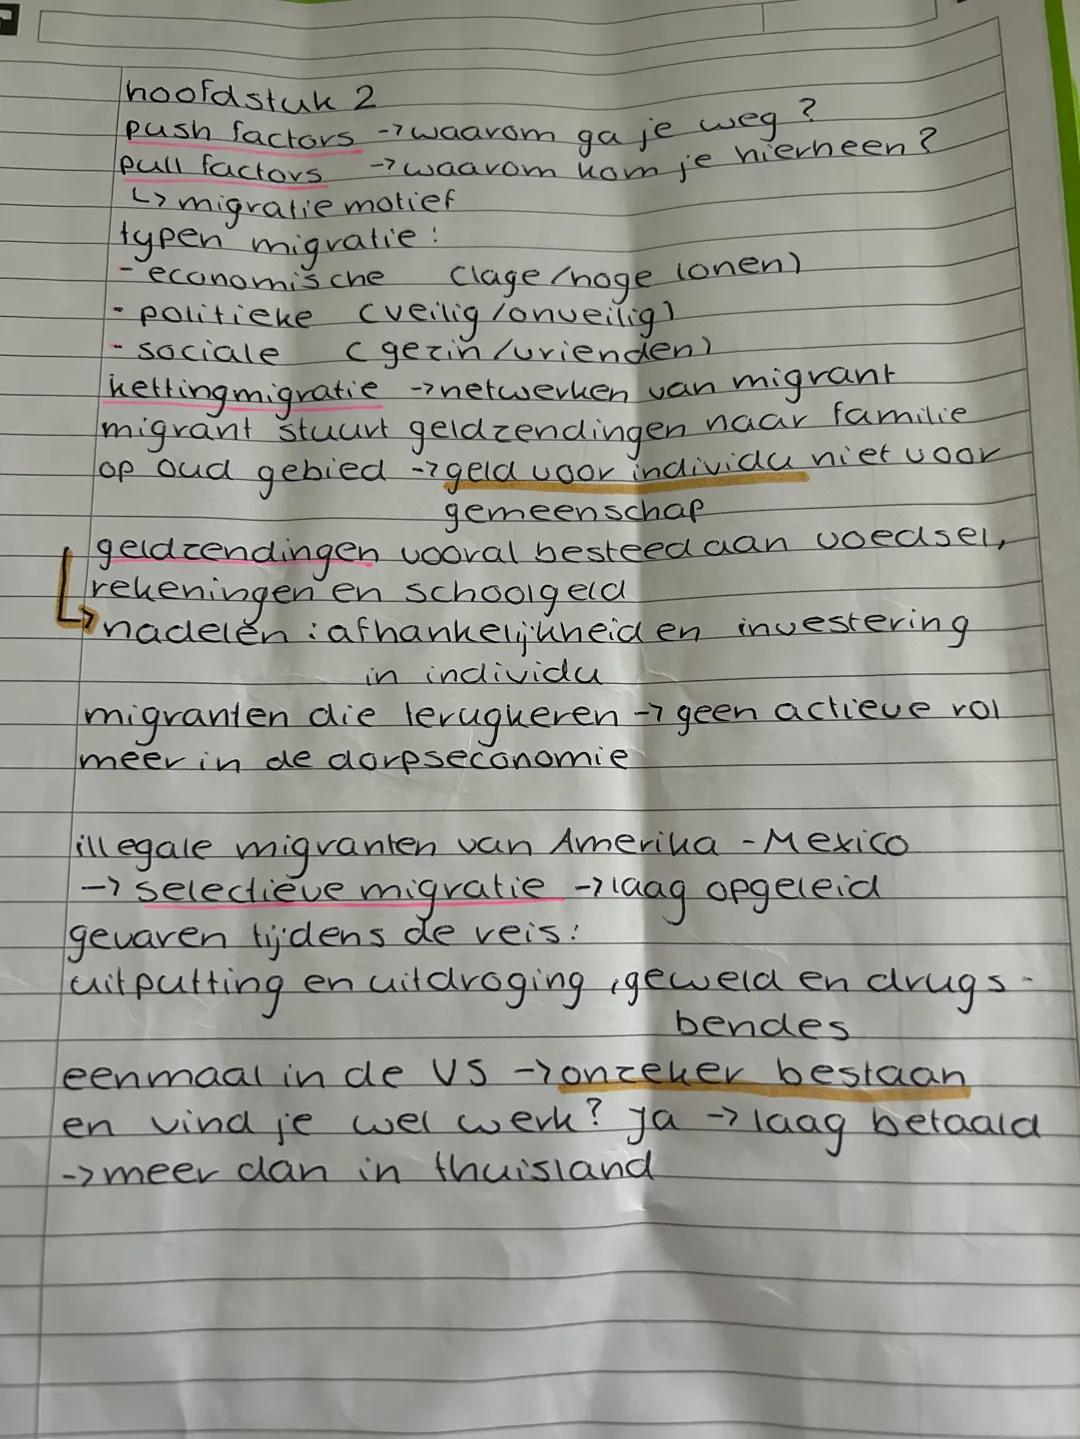 hoofdstuk 2
push factors -> waarom ga je weg?
pull factors -> waarom kom je hierheen?
↳ migratiemotief
typen migratie:
- economische (lage/hoge lonen)
- politieke (veilig/onveilig)
- sociale (gezin/vrienden)
kettingmigratie -> netwerken van migrant
migrant stuurt geldzendingen naar familie
op oud gebied -> geld voor individu niet voor
gemeenschap
geldzendingen vooral besteed aan voedsel,
rekeningen en schoolgeld
↳ nadelen: afhankelijkheid en investering
in individu
migranten die terugkeren -> geen actieve rol
meer in de dorpseconomie
illegale migranten van Amerika - Mexico
-> selectieve migratie -> laag opgeleid
gevaren tijdens de reis:
uitputting en uitdroging, geweld en drugs-
bendes
eenmaal in de VS -> onzeker bestaan
en vind je wel werk? ja -> laag betaald
-> meer dan in thuisland